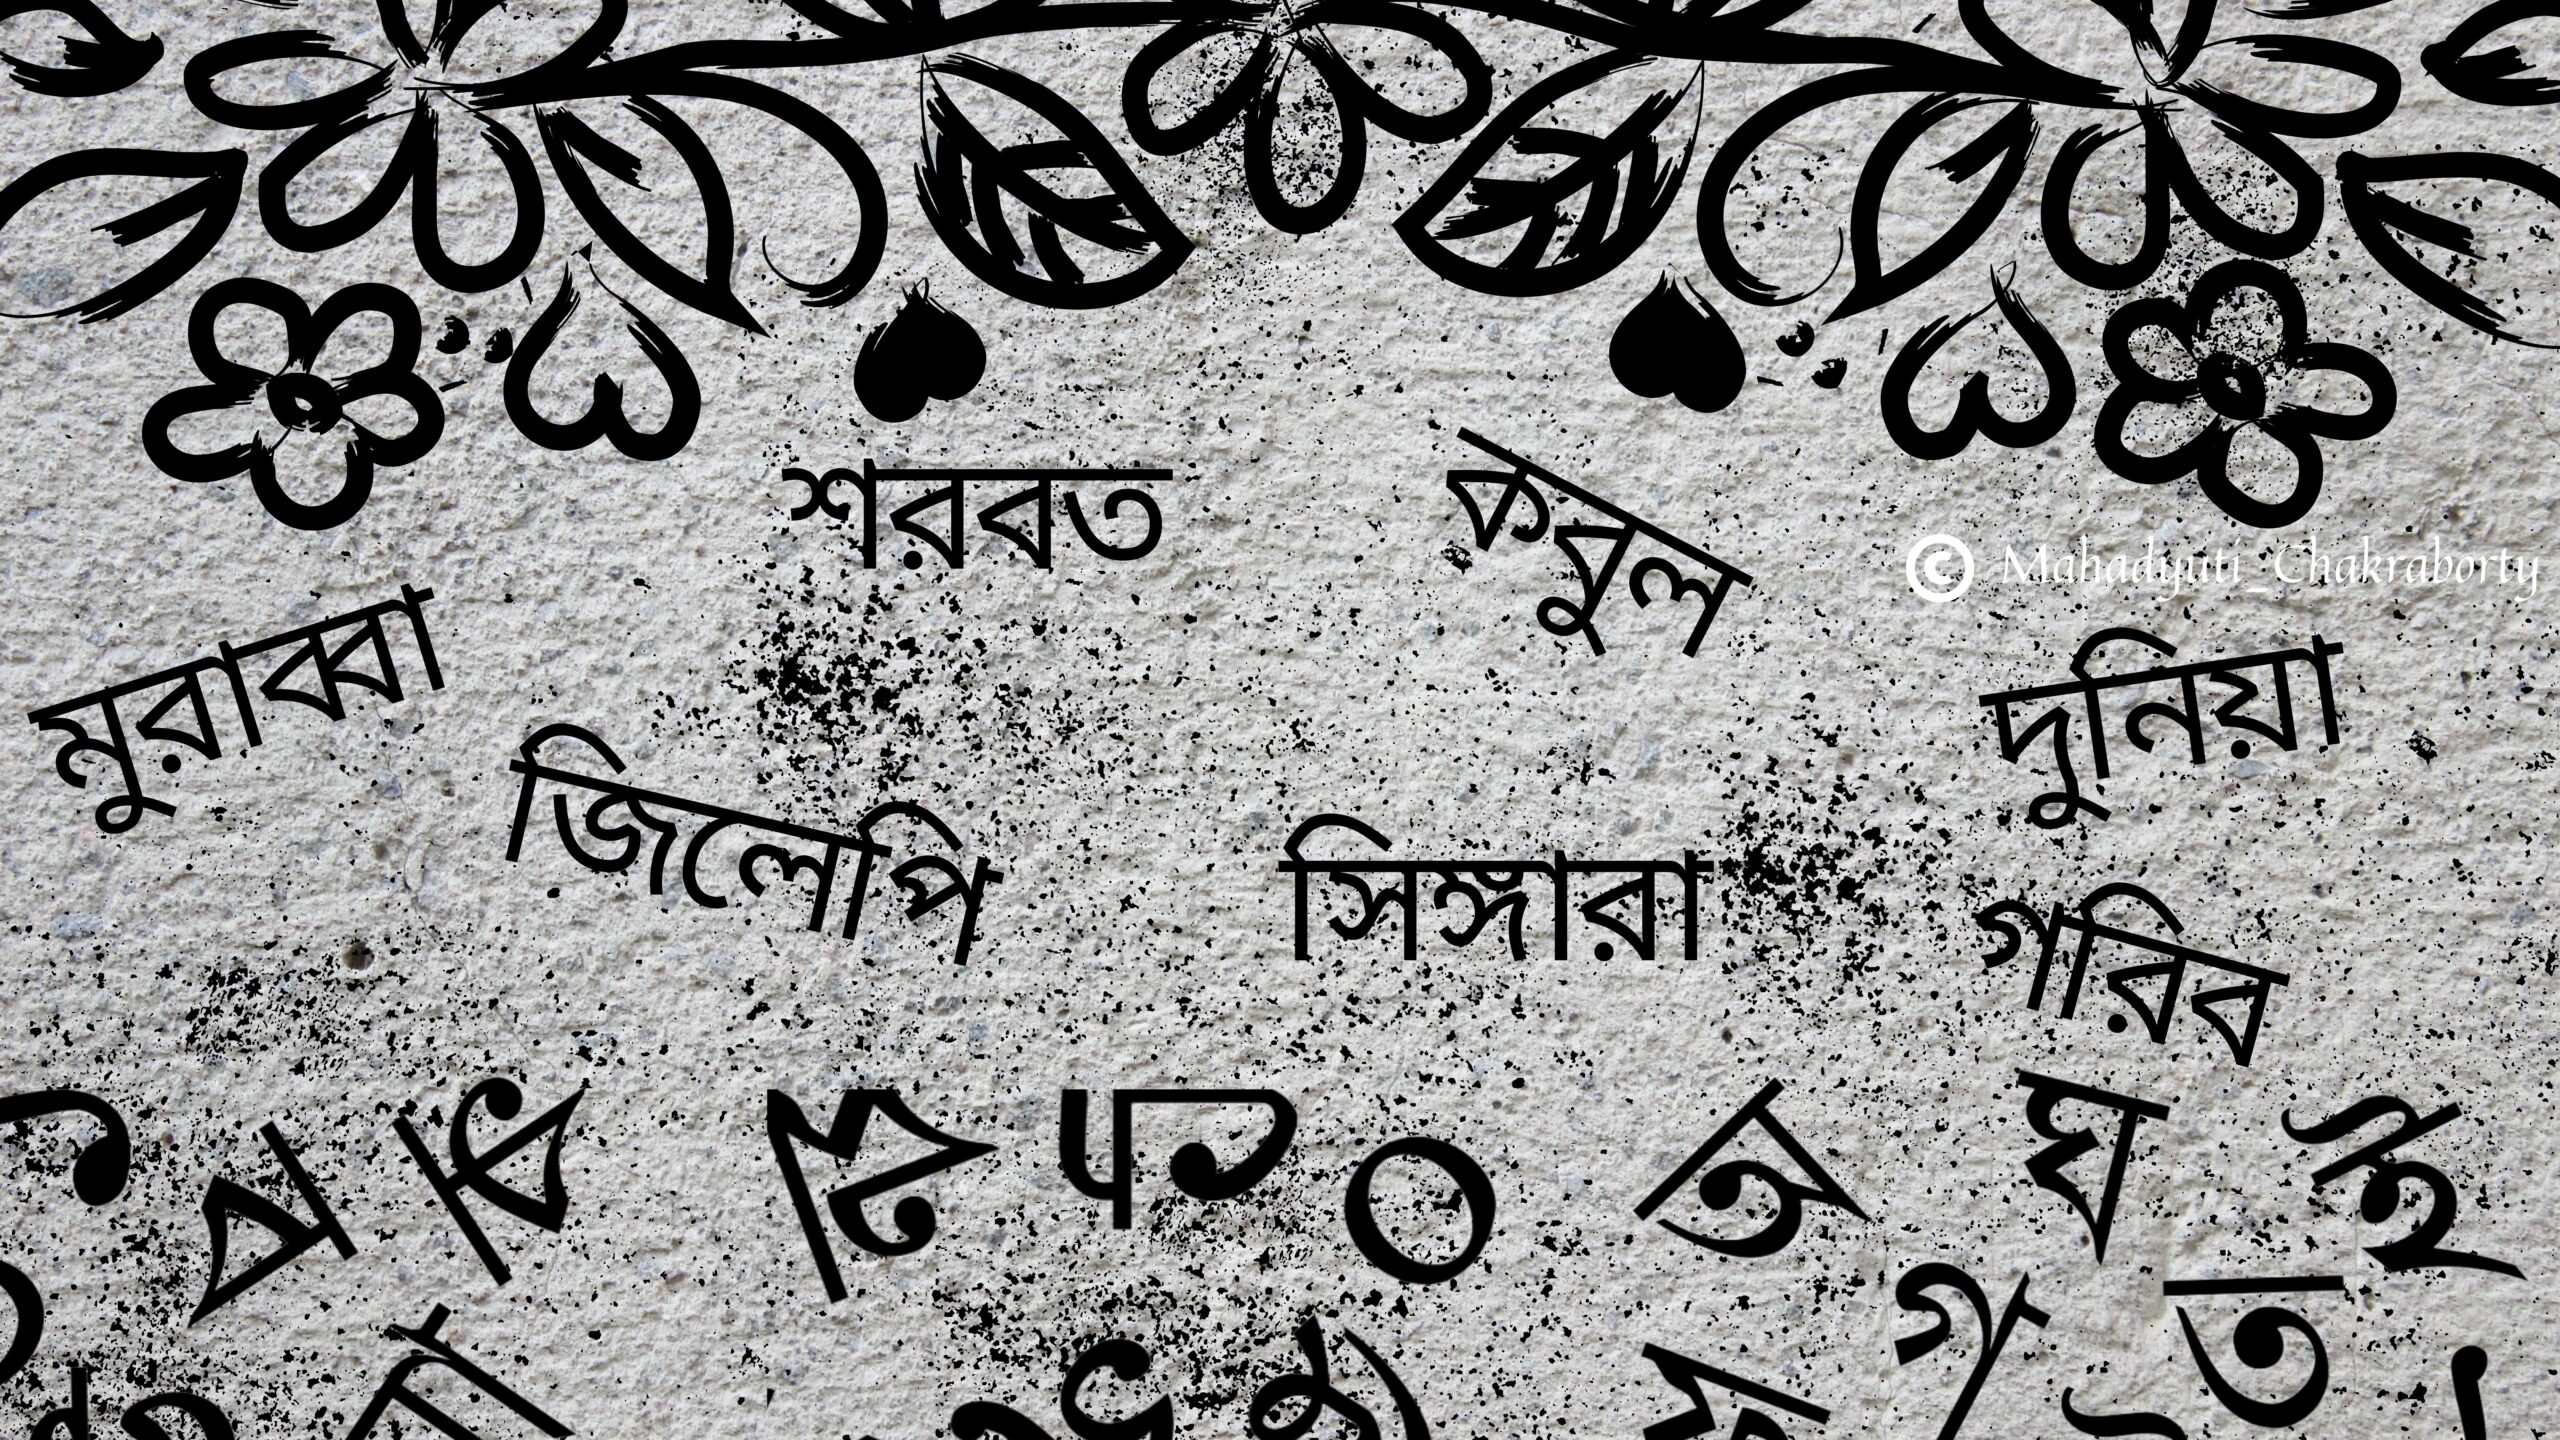 শরবত
কবুল
© Mahadyuti_Chakraborty
মুরাব্বা
দুনিয়া
জিলেপি
সিঙ্গারা
গরিব
ঘ
ই
গ
ত